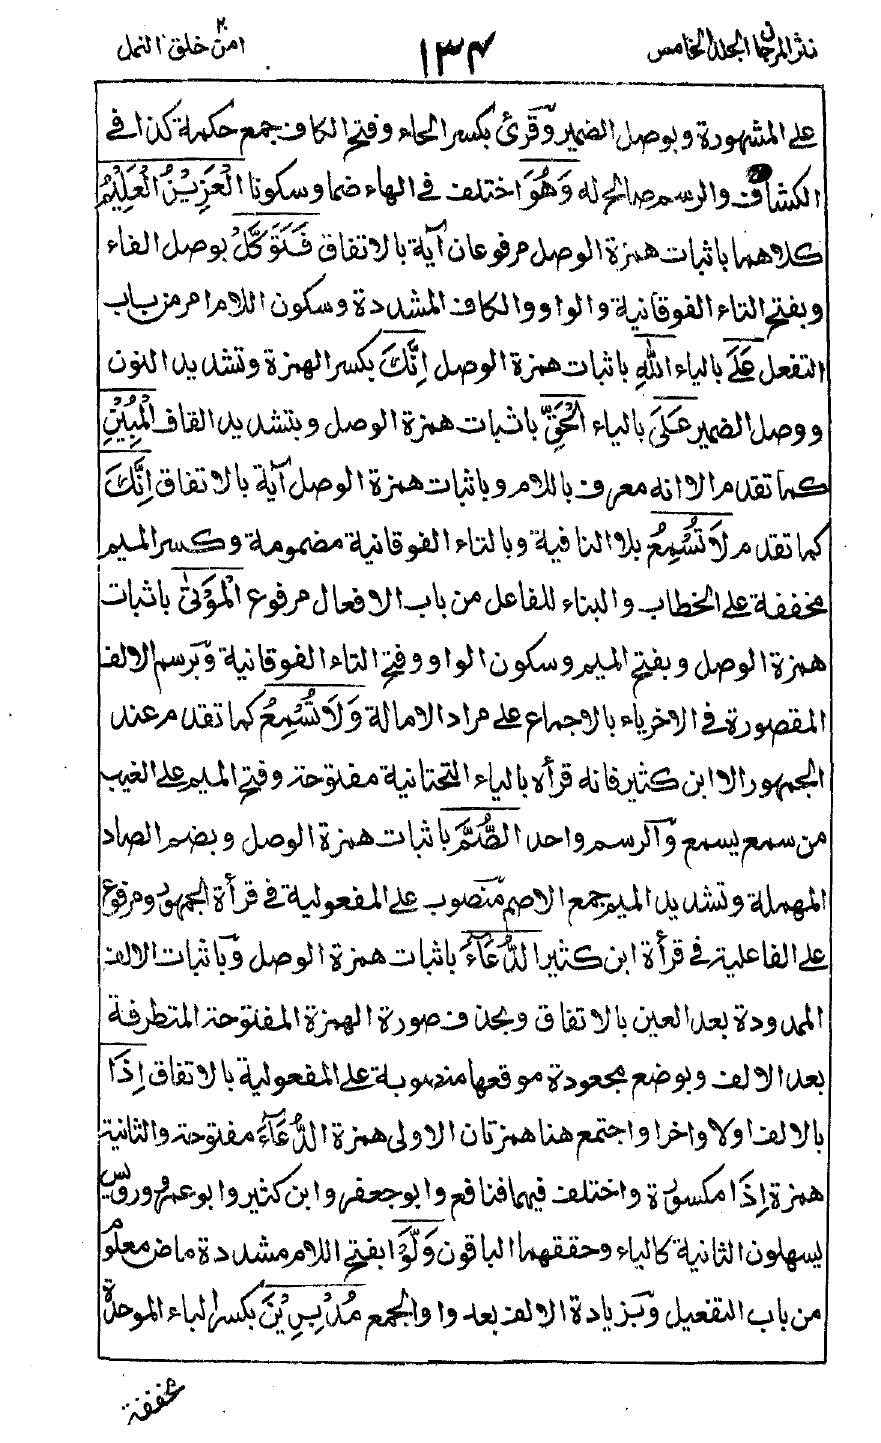 نثر المرجان المجلد الخامس
١٣٤
امن خلق ٢٠ النمل
على المشهورة وبوصل الضمير وقرئ بكسر الحاء وفتح الكاف جمع حكمة كذا في
الكشاف والرسم صالح له وَهُوَ اختلف في الهاء ضما وسكونا الْعَزِيْزُ الْعَلِيْمُ
كلاهما باثبات همزة الوصل مرفوعان آية بالاتفاق فَتَوَكَّلْ بوصل الفاء
وبفتح التاء الفوقانية والواو والكاف المشددة وسكون اللام امر من باب
التفعل عَلَى بالياء اللّٰهِ باثبات همزة الوصل اِنَّكَ بكسر الهمزة وتشديد النون
ووصل الضمير عَلَى بالياء الْحَقِّ باثبات همزة الوصل وبتشديد القاف الْمُبِيْنِ
كما تقدم الا انه معرف باللام وباثبات همزة الوصل آية بالاتفاق اِنَّكَ
كما تقدم لَا تُسْمِعُ بلا النافية وبالتاء الفوقانية مضمومة وكسر الميم
مخففة على الخطاب والبناء للفاعل من باب الافعال مرفوع الْمَوْتٰى باثبات
همزة الوصل وبفتح الميم وسكون الواو وفتح التاء الفوقانية وبرسم الالف
المقصورة في الاخر ياء بالاجماع على مراد الامالة وَلَا تُسْمِعُ كما تقدم عند
الجمهور الا ابن كثير فانه قرأه بالياء التحتانية مفتوحة وفتح الميم على الغيب
من سمع يسمع والرسم واحد الصُّمَّ باثبات همزة الوصل وبضم الصاد
المهملة وتشديد الميم جمع الاصم منصوب على المفعولية في قرأة الجمهور ومرفوع
على الفاعلية في قرأة ابن كثير الدُّعَآءَ باثبات همزة الوصل وباثبات الالف
الممدودة بعد العين بالاتفاق وبحذف صورة الهمزة المفتوحة المتطرفة
بعد الالف وبوضع مجعودة موقعها منصوبة على المفعولية بالاتفاق اِذَا
بالالف اولا واخرا واجتمع هنا همزتان الاولى همزة الدُّعَآءَ مفتوحة والثانية
همزة اِذَا مكسورة واختلف فيهما فنافع وابو جعفر وابن كثير وابو عمرو ورويس
يسهلون الثانية كالياء وحققهما الباقون وَلَّوْا بفتح اللام مشددة ماض معلوم
من باب التفعيل وبزيادة الالف بعد واو الجمع مُدْبِرِيْنَ بكسر الباء الموحدة
مخففة